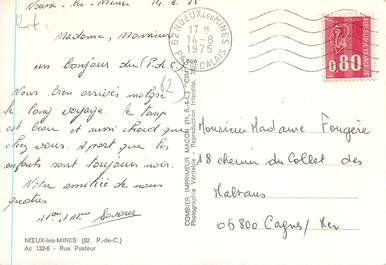 Noeux-les-Mines 14.8.75
Madame, Monsieur
un bonjour du P.de.C.
Nous bien arrivés malgré
le long voyage. le temps
est beau et aussi chaud que
chez vous. Apart que les
enfants sont toujours noir.
Notre amitié de nous
quatres
62
NŒUX-les-MINES (62. P.-de-C.)
Ac 132-6 - Rue Pasteur
COMBIER IMPRIMEUR MACON
Photographie Véritable - Reproduction Interdite
62 NOEUX LES MINES
17 H
14-8
1975
PAS DE CALAIS
0,80
Monsieur Madame Fougère
18 chemin du Collet des
06800 Cagnes/Mer